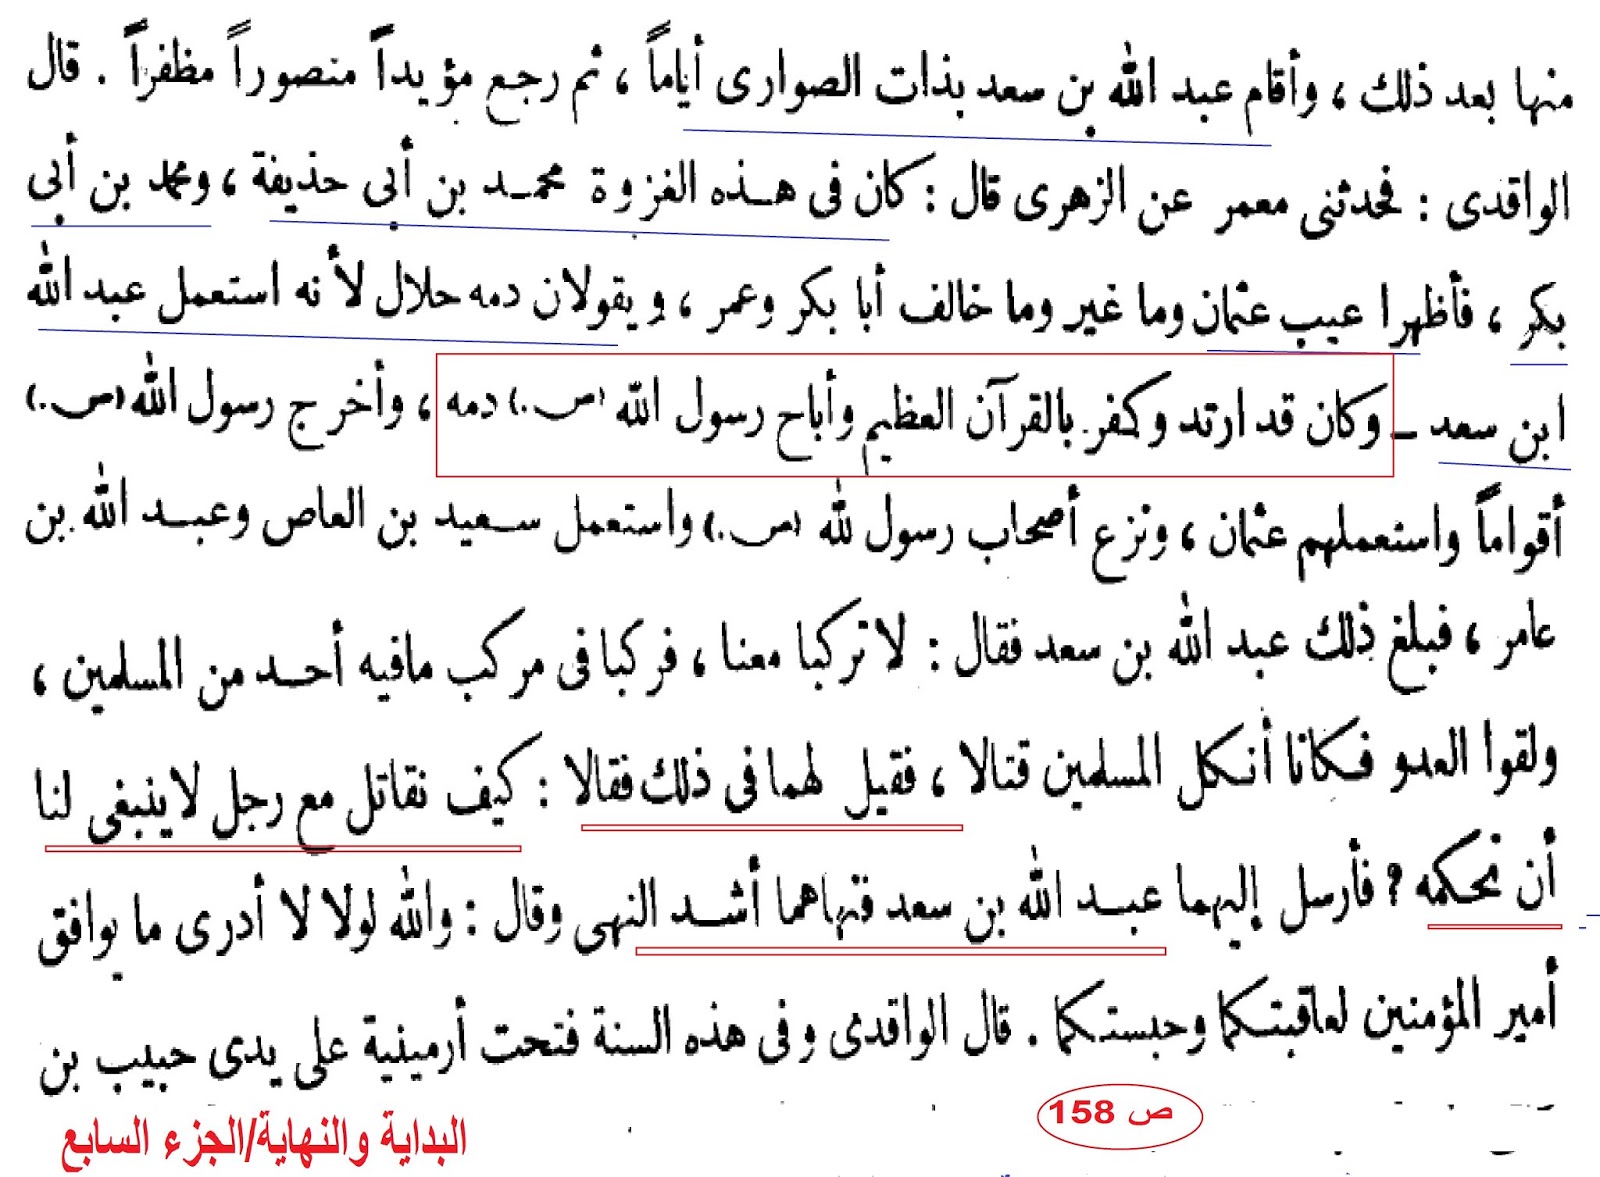 منها بعد ذلك ، وأقام عبد الله بن سعد بذات الصوارى أياماً ، ثم رجع مؤيداً منصوراً مظفراً . قال
الواقدى : فحدثنى معمر عن الزهرى قال : كان فى هذه الغزوة محمد بن أبى حذيفة ، ومحمد بن أبى
بكر ، فأظهرا عيب عثمان وما غير وما خالف أبا بكر وعمر ، ويقولان دمه حلال لأنه استعمل عبد الله
ابن سعد ـ وكان قد ارتد وكفر بالقرآن العظيم وأباح رسول الله (ص.) دمه ، وأخرج رسول الله (ص.)
أقواماً واستعملهم عثمان ، ونزع أصحاب رسول لله (ص.) واستعمل سعيد بن العاص وعبد الله بن
عامر ، فبلغ ذلك عبد الله بن سعد فقال : لا تركبا معنا ، فركبا فى مركب مافيه أحد من المسلمين ،
ولقوا العدو فكانا أنكل المسلمين قتالا ، فقيل لهما فى ذلك فقالا : كيف نقاتل مع رجل لاينبغى لنا
أن نحكمه ? فأرسل إليهما عبد الله بن سعد فنهاهما أشد النهى وقال : والله لولا لا أدرى ما يوافق
أمير المؤمنين لعاقبتكما وحبستكما . قال الواقدى وفى هذه السنة فتحت أرمينية على يدى حبيب بن
ص 158
البداية والنهاية/الجزء السابع